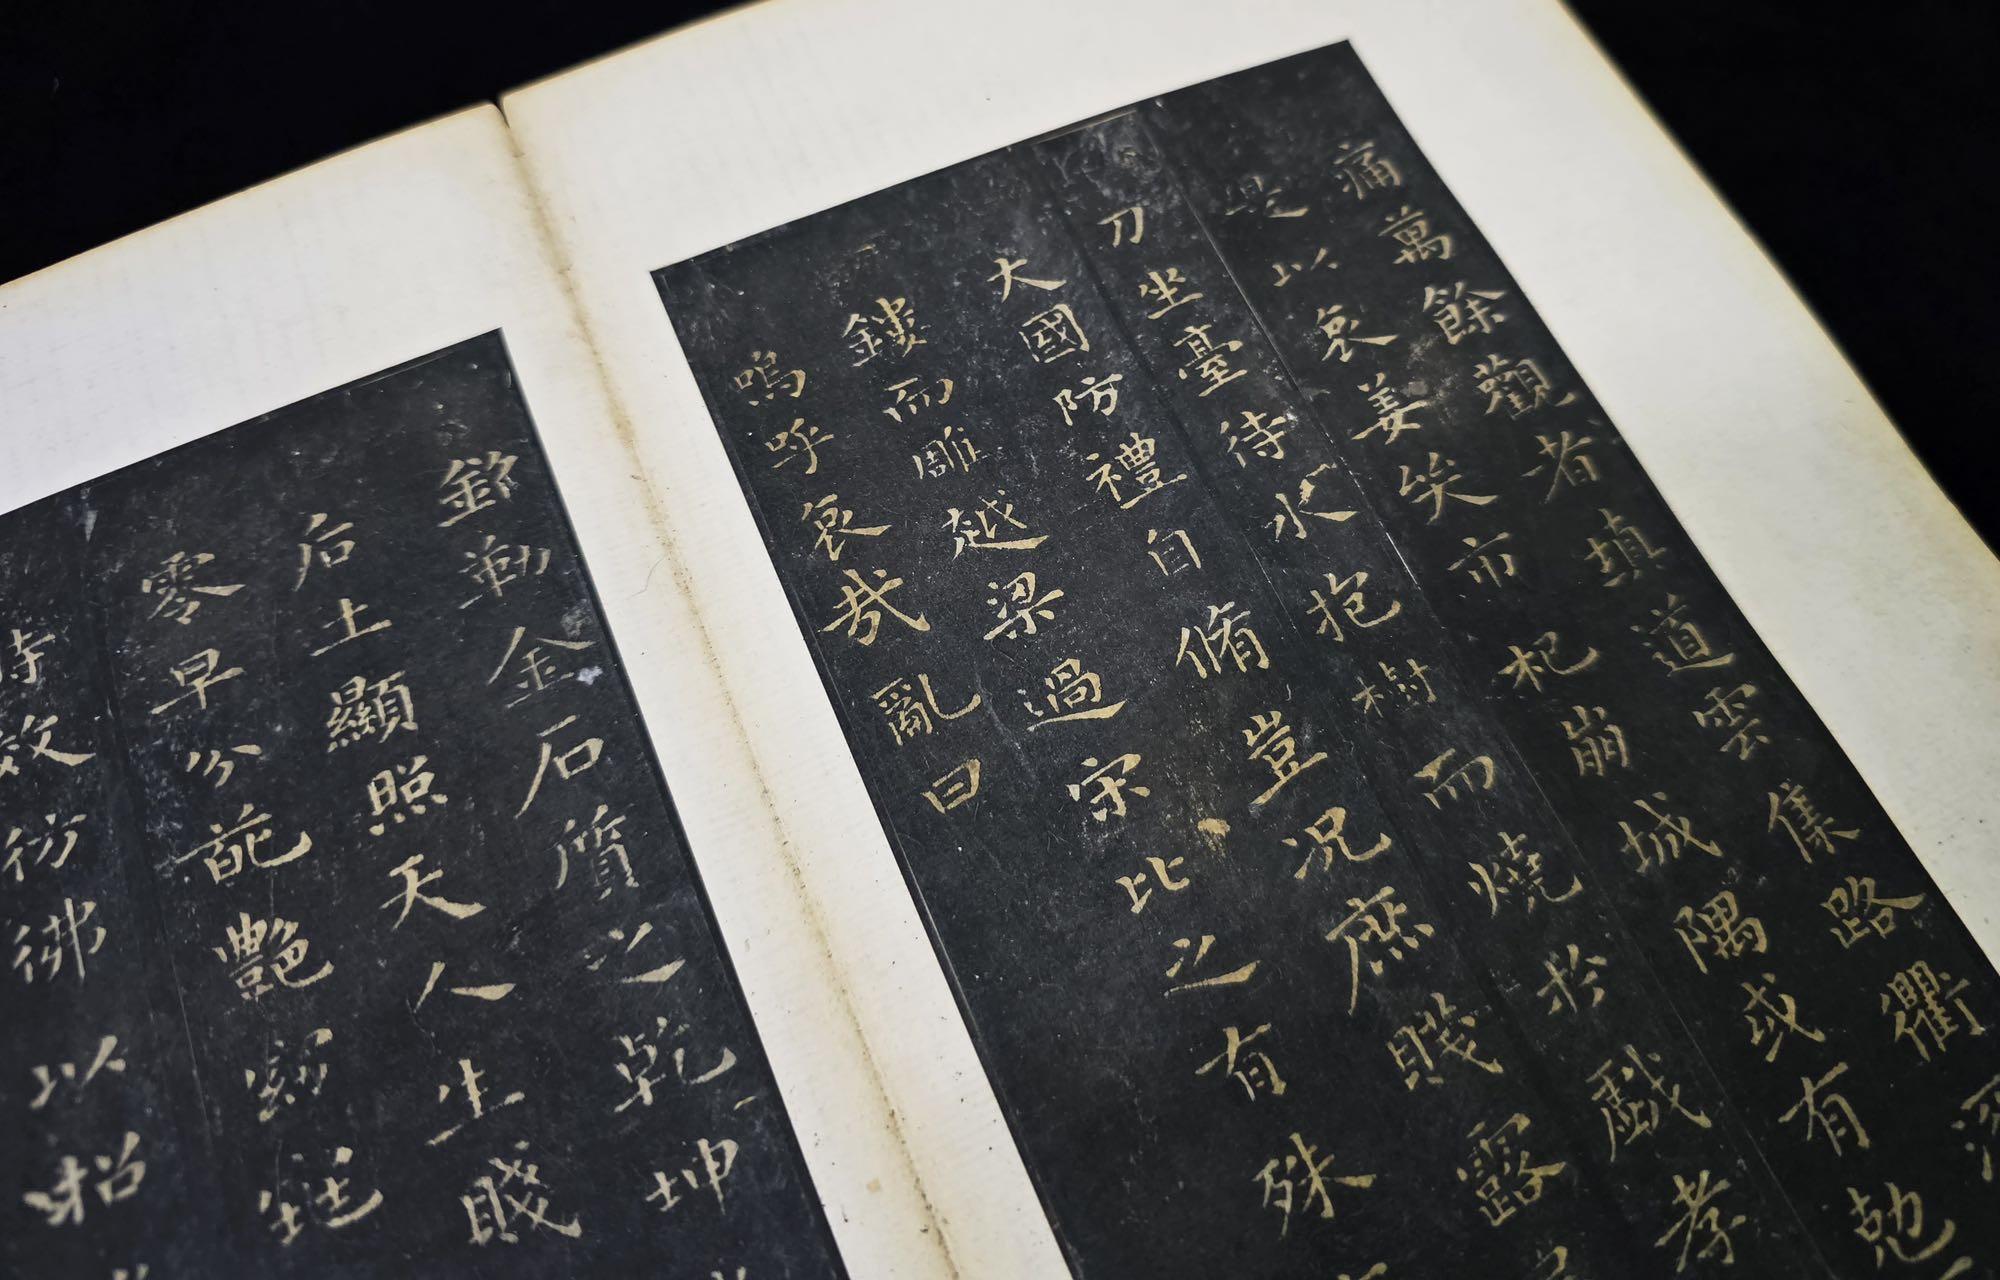 痛萬餘觀者填道雲集路衢流
是以哀姜哭市杞崩城隅或有尅
刀坐臺待水抱樹而燒於戲孝
大國防禮自脩豈況庶賤露
鏤而雕越梁過宋比之有殊
嗚呼哀哉亂曰
銘勒金石質之乾坤
后土顯照天人生賤
零早分葩艷窈窕
時效彷彿以招